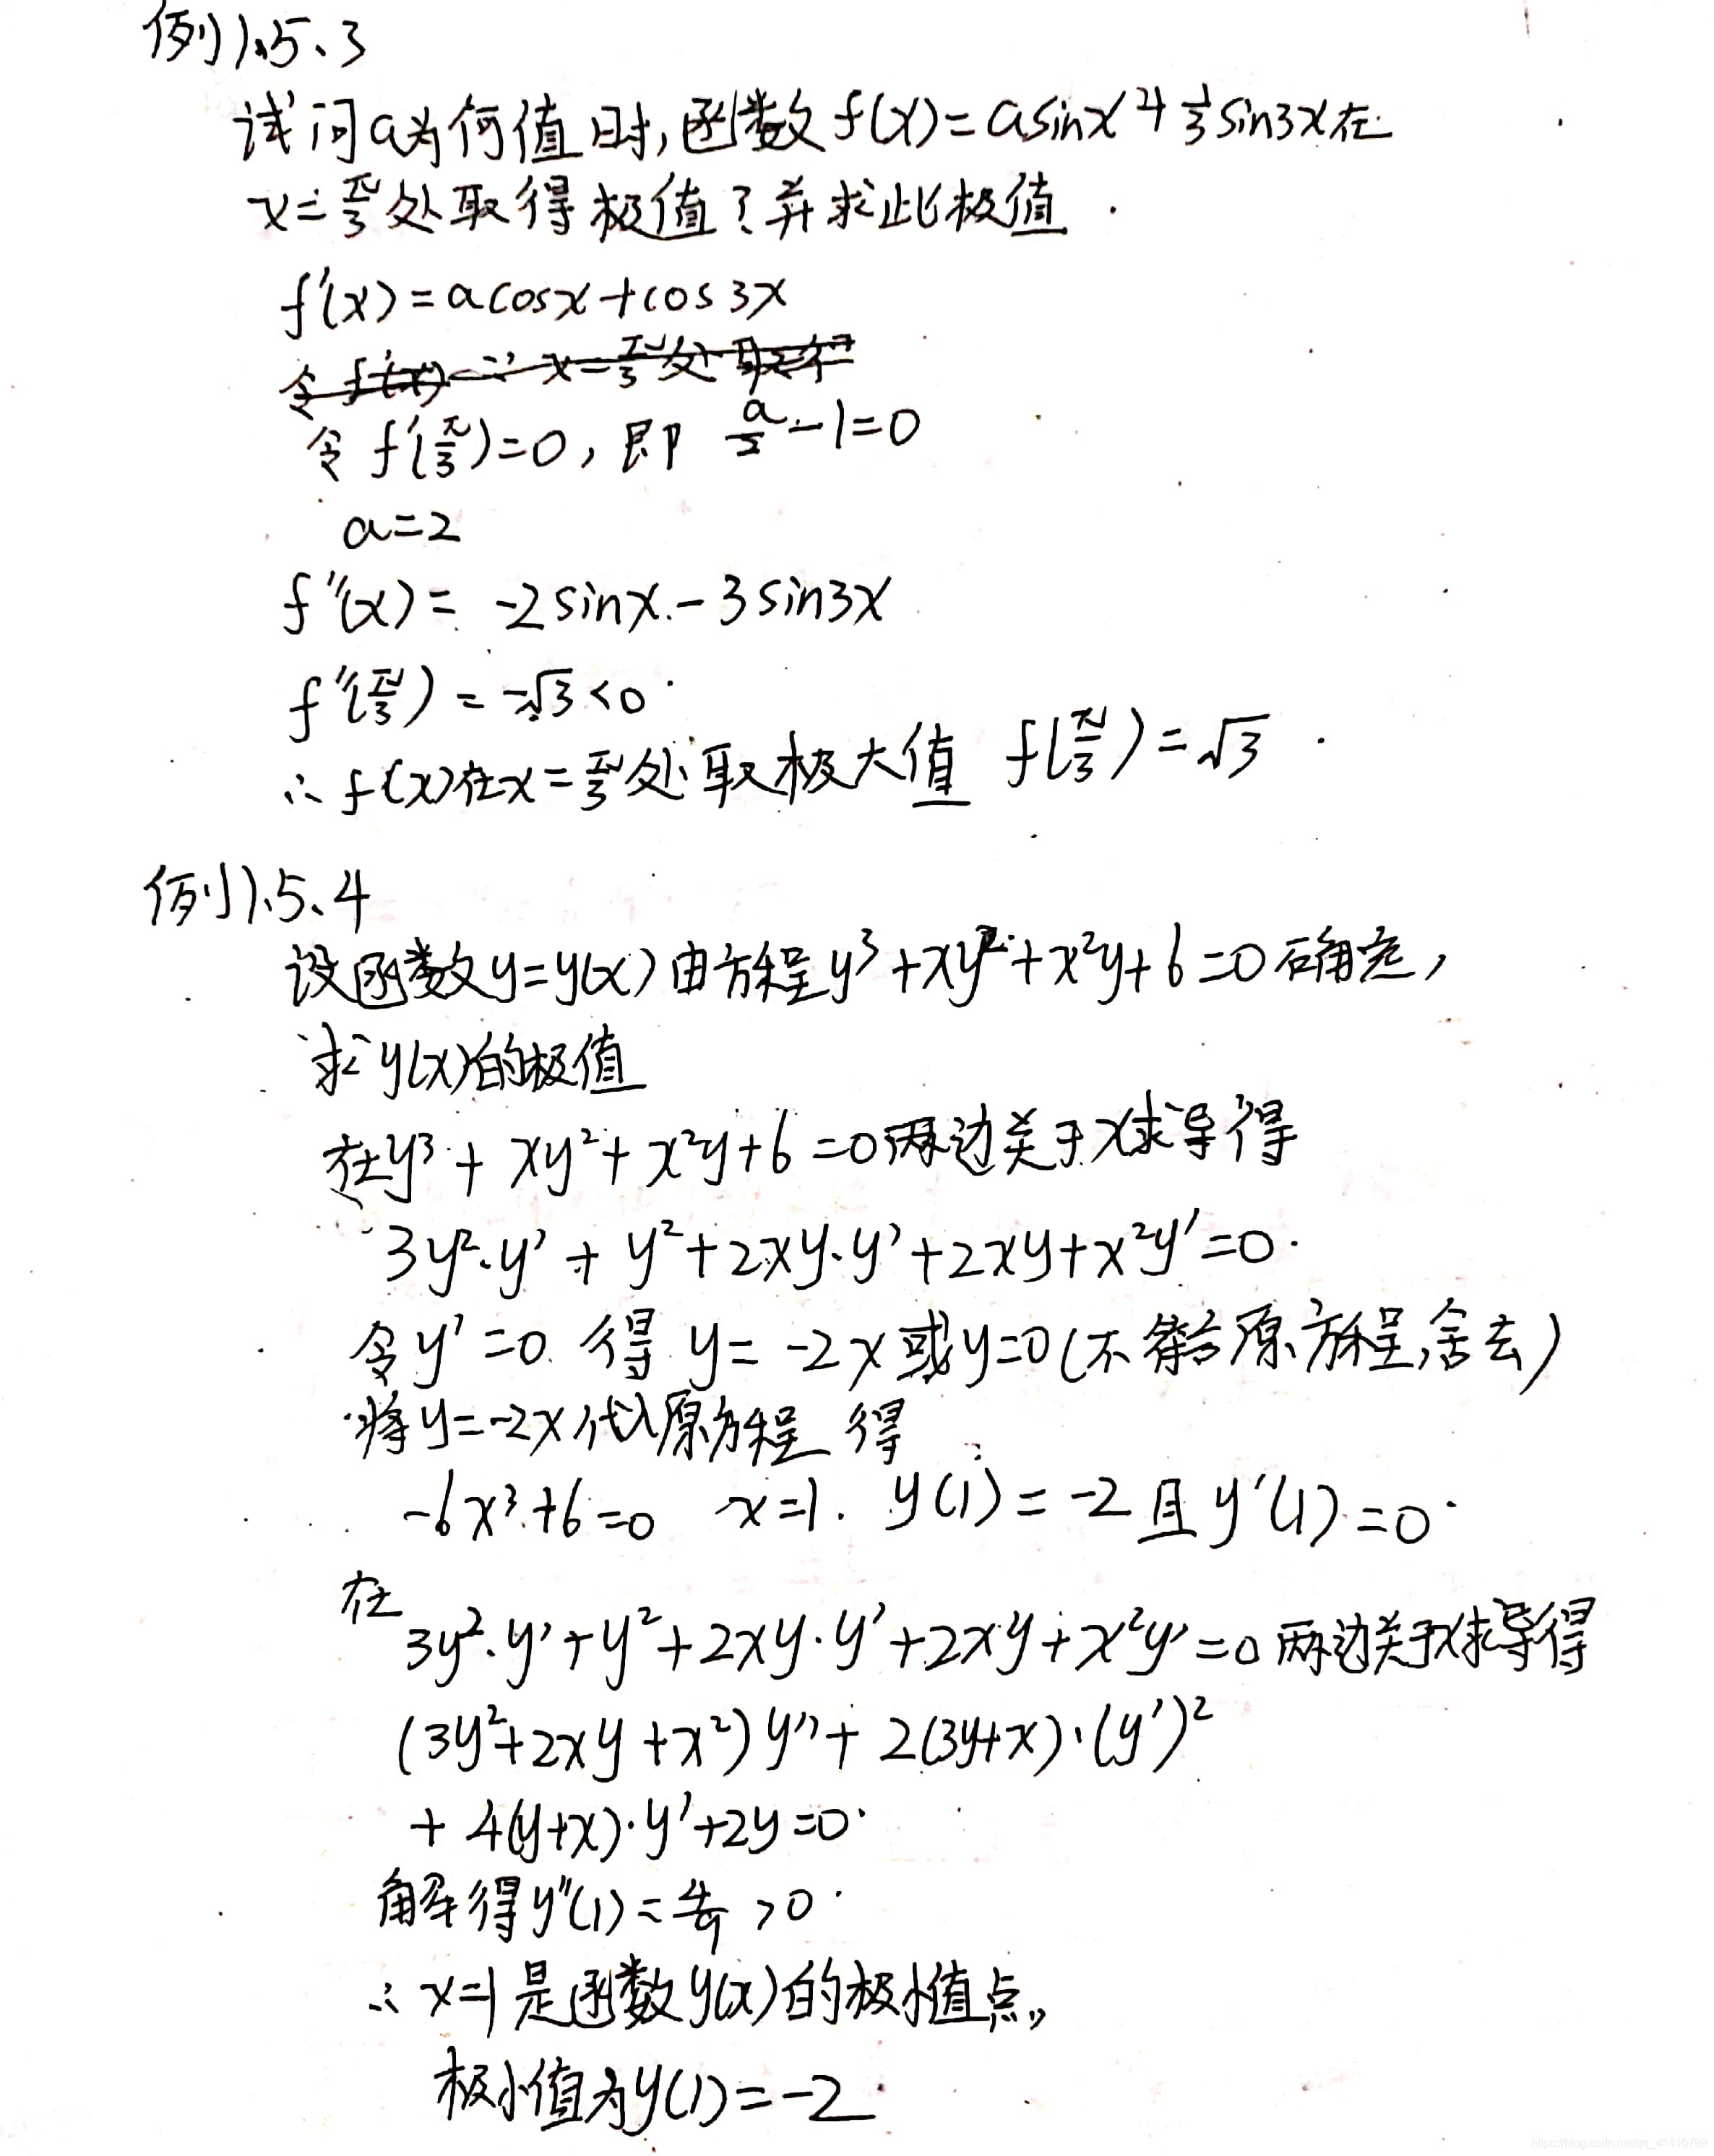 例1.5.3
试问a为何值时,函数f(x)=asinx+⅓sin3x在
x=π/3处取得极值？并求此极值.
f'(x)=acosx+cos3x
令f'(x) ∵ x=π/3处取得
令f'(π/3)=0,即 a/2-1=0
a=2
f''(x)= -2sinx-3sin3x
f''(π/3)=-√3<0
∴f(x)在x=π/3处取极大值 f(π/3)=√3
例1.5.4
设函数y=y(x)由方程y³+xy²+x²y+6=0确定,
求y(x)的极值
在y³+xy²+x²y+6=0两边关于x求导得
3y²·y'+y²+2xy·y'+2xy+x²y'=0.
令y'=0 得 y=-2x或y=0(不符合原方程,舍去)
将y=-2x代入原方程 得
-6x³+6=0 x=1. y(1)=-2且y'(1)=0
在3y²·y'+y²+2xy·y'+2xy+x²y'=0两边关于x求导得
(3y²+2xy+x²)y''+2(3y+x)·(y')²
+4(y+x)·y'+2y=0
解得y''(1)=4/9>0
∴x=1是函数y(x)的极小值点,
极小值为y(1)=-2
https://blog.csdn.net/qq_41410799